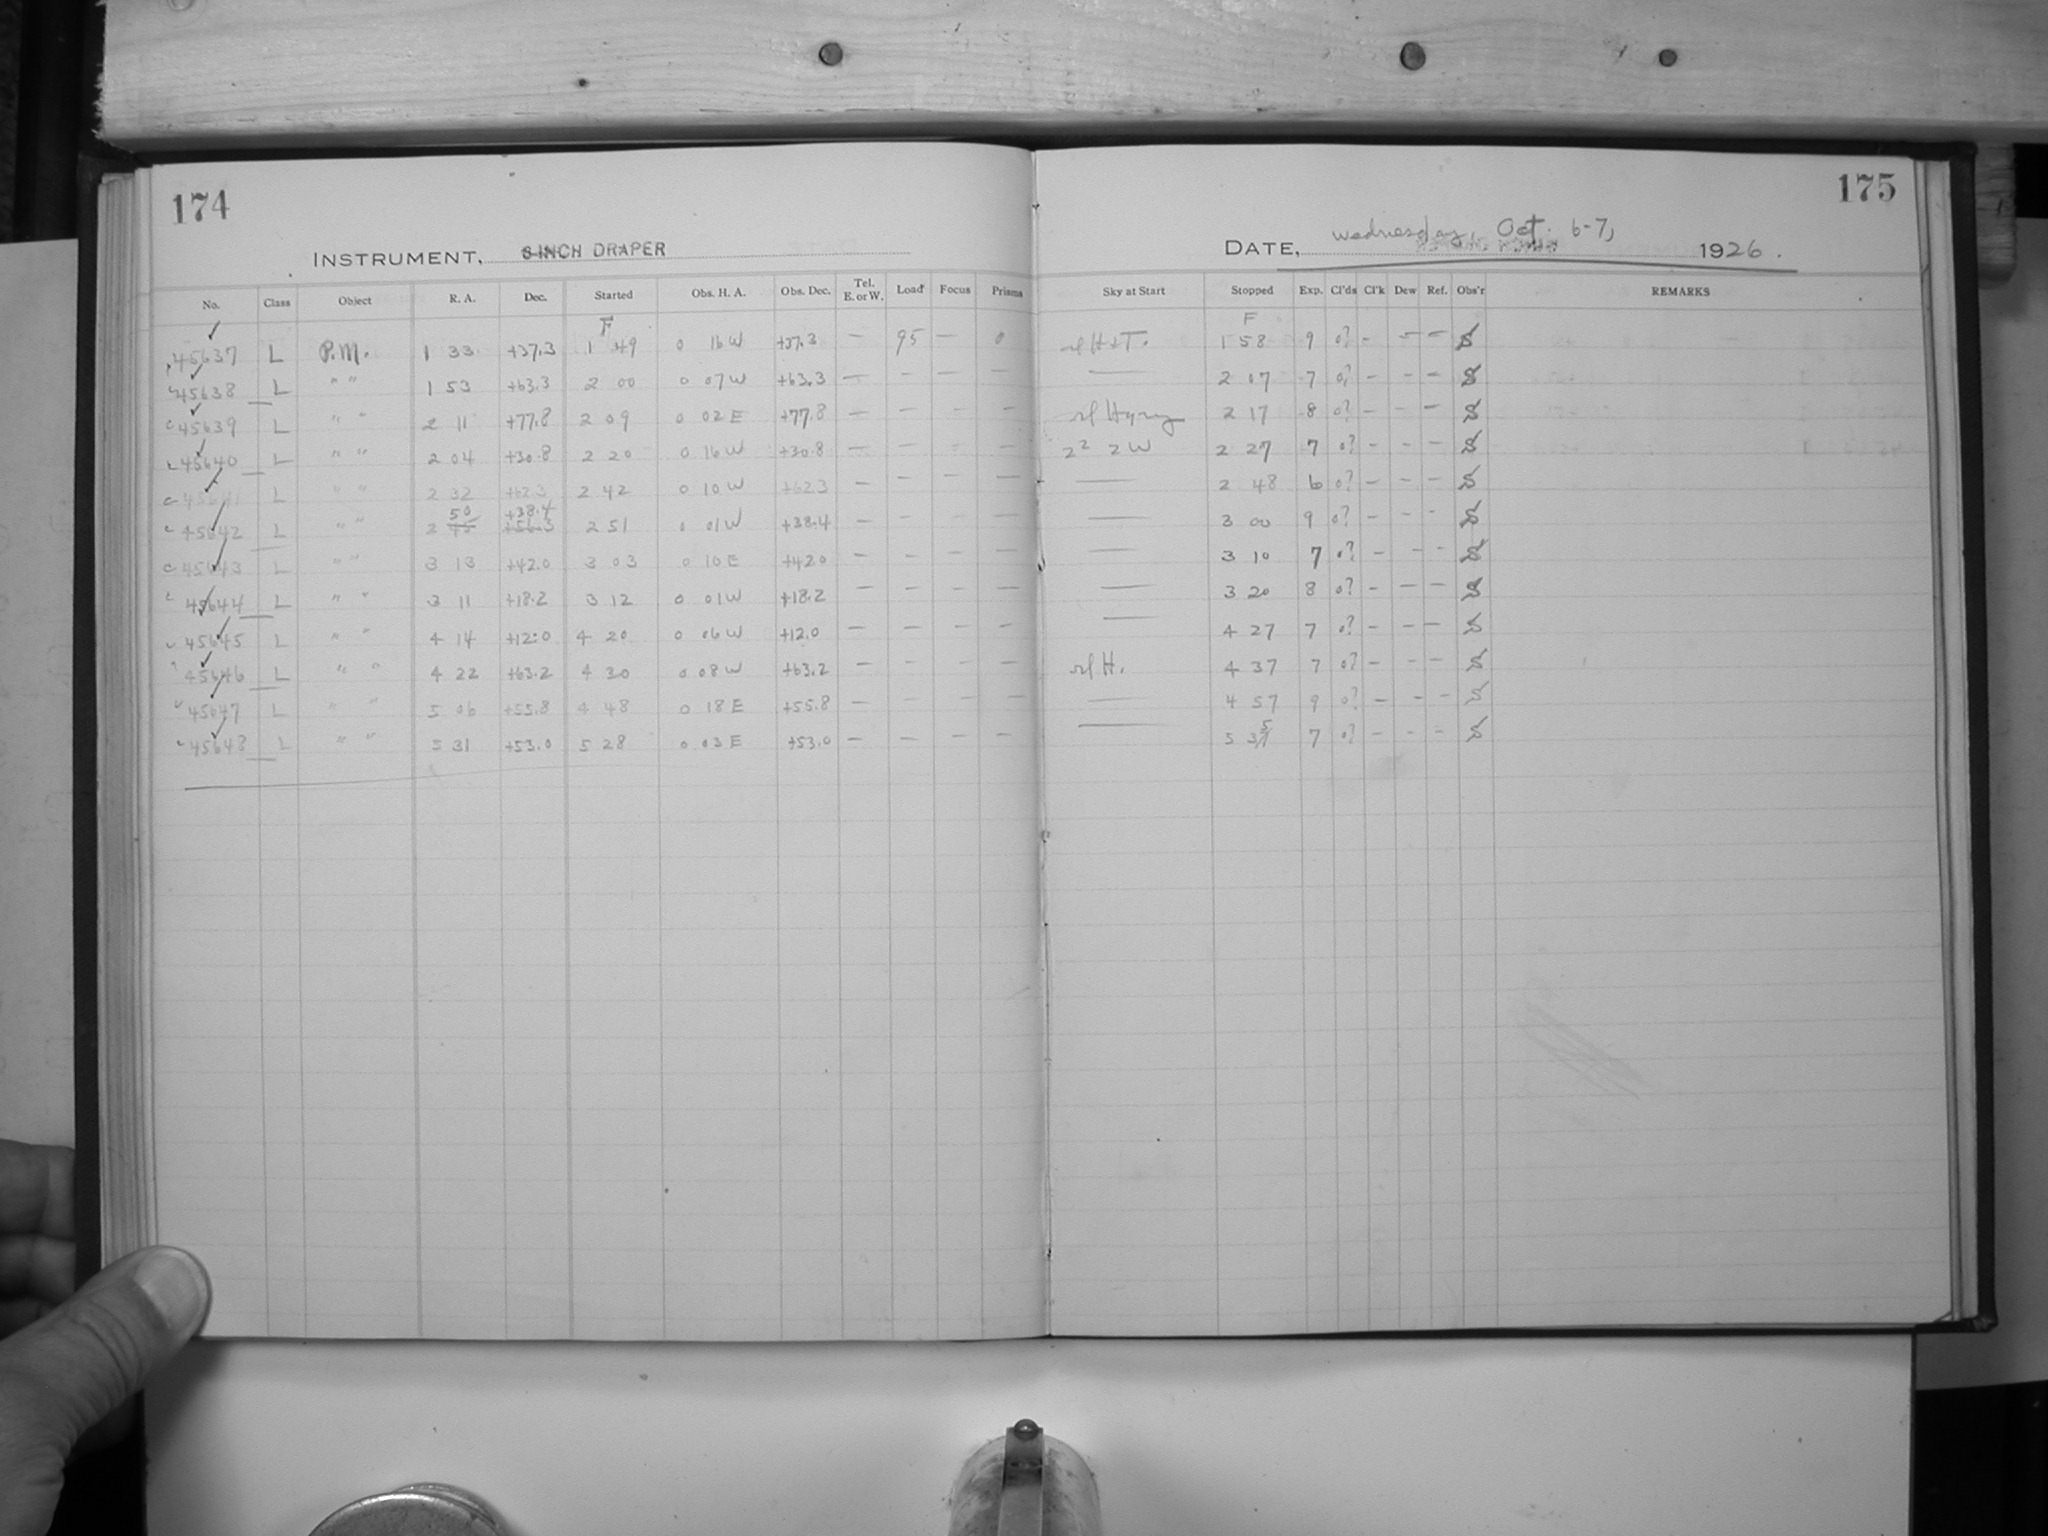 174
INSTRUMENT, 8-INCH DRAPER
No. Class Object R. A. Dec. Started Obs. H. A. Obs. Dec. Tel. E. or W. Load Focus Prisms
F
45637 L P.M. 1 33 +37.3 1 49 0 16 W +37.3 — 95 — 0
45638 L " " 1 53 +63.3 2 00 0 07 W +63.3 — — — —
45639 L " " 2 11 +77.8 2 09 0 02 E +77.8 — — — —
45640 L " " 2 04 +30.8 2 20 0 16 W +30.8 — — — —
45641 L " " 2 32 +62.3 2 42 0 10 W +62.3 — — — —
50 +38.4
45642 L " " 2 45 +56.3 2 51 0 01 W +38.4 — — — —
45643 L " " 3 13 +42.0 3 03 0 10 E +42.0 — — — —
45644 L " " 3 11 +18.2 3 12 0 01 W +18.2 — — — —
45645 L " " 4 14 +12.0 4 20 0 06 W +12.0 — — — —
45646 L " " 4 22 +63.2 4 30 0 08 W +63.2 — — — —
45647 L " " 5 06 +55.8 4 48 0 18 E +55.8 — — — —
45648 L " " 5 31 +53.0 5 28 0 03 E +53.0 — — — —
175
DATE, Wednesday, Oct. 6-7, 1926.
Sky at Start Stopped Exp. Cl'ds Cl'k Dew Ref. Obs'r REMARKS
F
1 58 9 0? - — — S
— 2 07 7 0? - - — S
2 17 8 0? - - — S
2² 2 W 2 27 7 0? - - — S
— 2 48 6 0? - - — S
— 3 00 9 0? - - - S
— 3 10 7 0? - - - S
— 3 20 8 0? - — — S
— 4 27 7 0? - - — S
H. 4 37 7 0? - - - S
— 4 57 9 0? - - - S
— 5 35 7 0? - - - S